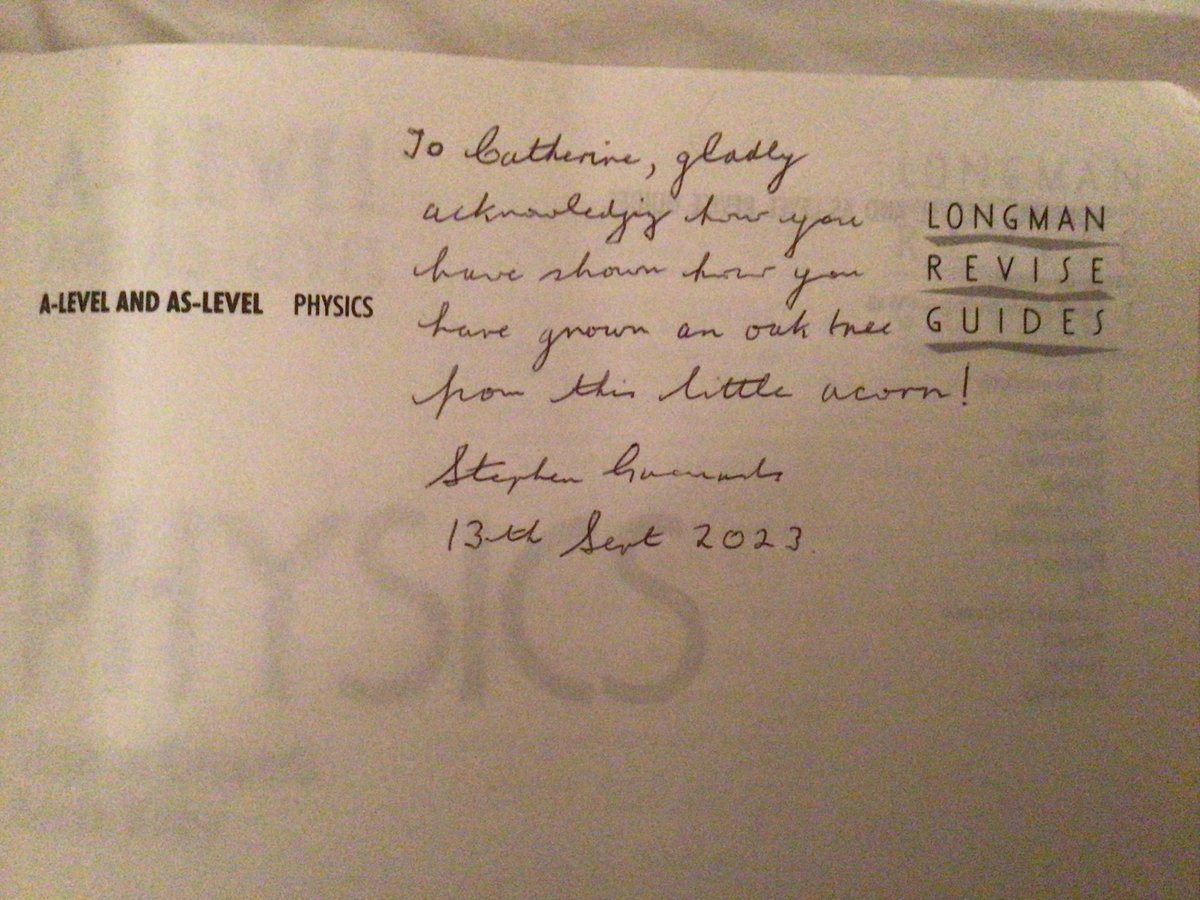 To Catherine, gladly
acknowledging how you
have shown how you
have grown an oak tree
from this little acorn!
Stephen
13th Sept 2023.
A-LEVEL AND AS-LEVEL PHYSICS
LONGMAN
REVISE
GUIDES
PHYSICS